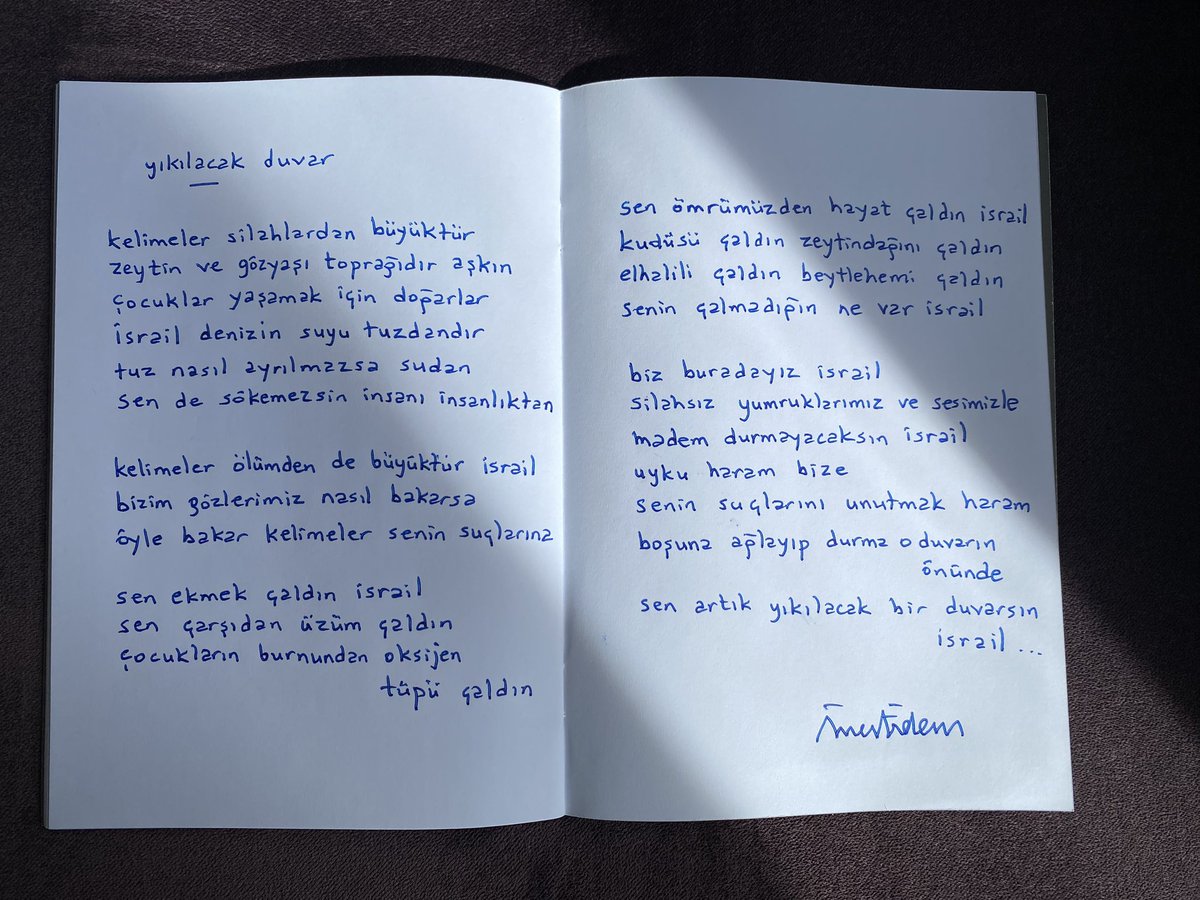 yıkılacak duvar
kelimeler silahlardan büyüktür
zeytin ve gözyaşı toprağıdır aşkın
çocuklar yaşamak için doğarlar
israil denizin suyu tuzdandır
tuz nasıl ayrılmazsa sudan
sen de sökemezsin insanı insanlıktan
kelimeler ölümden de büyüktür israil
bizim gözlerimiz nasıl bakarsa
öyle bakar kelimeler senin suçlarına
sen ekmek çaldın israil
sen çarşıdan üzüm çaldın
çocukların burnundan oksijen
tüpü çaldın
sen ömrümüzden hayat çaldın israil
kudüsü çaldın zeytindağını çaldın
elhalili çaldın beytlehemi çaldın
senin çalmadığın ne var israil
biz buradayız israil
silahsız yumruklarımız ve sesimizle
madem durmayacaksın israil
uyku haram bize
senin suçlarını unutmak haram
boşuna ağlayıp durma o duvarın
önünde
sen artık yıkılacak bir duvarsın
israil ...